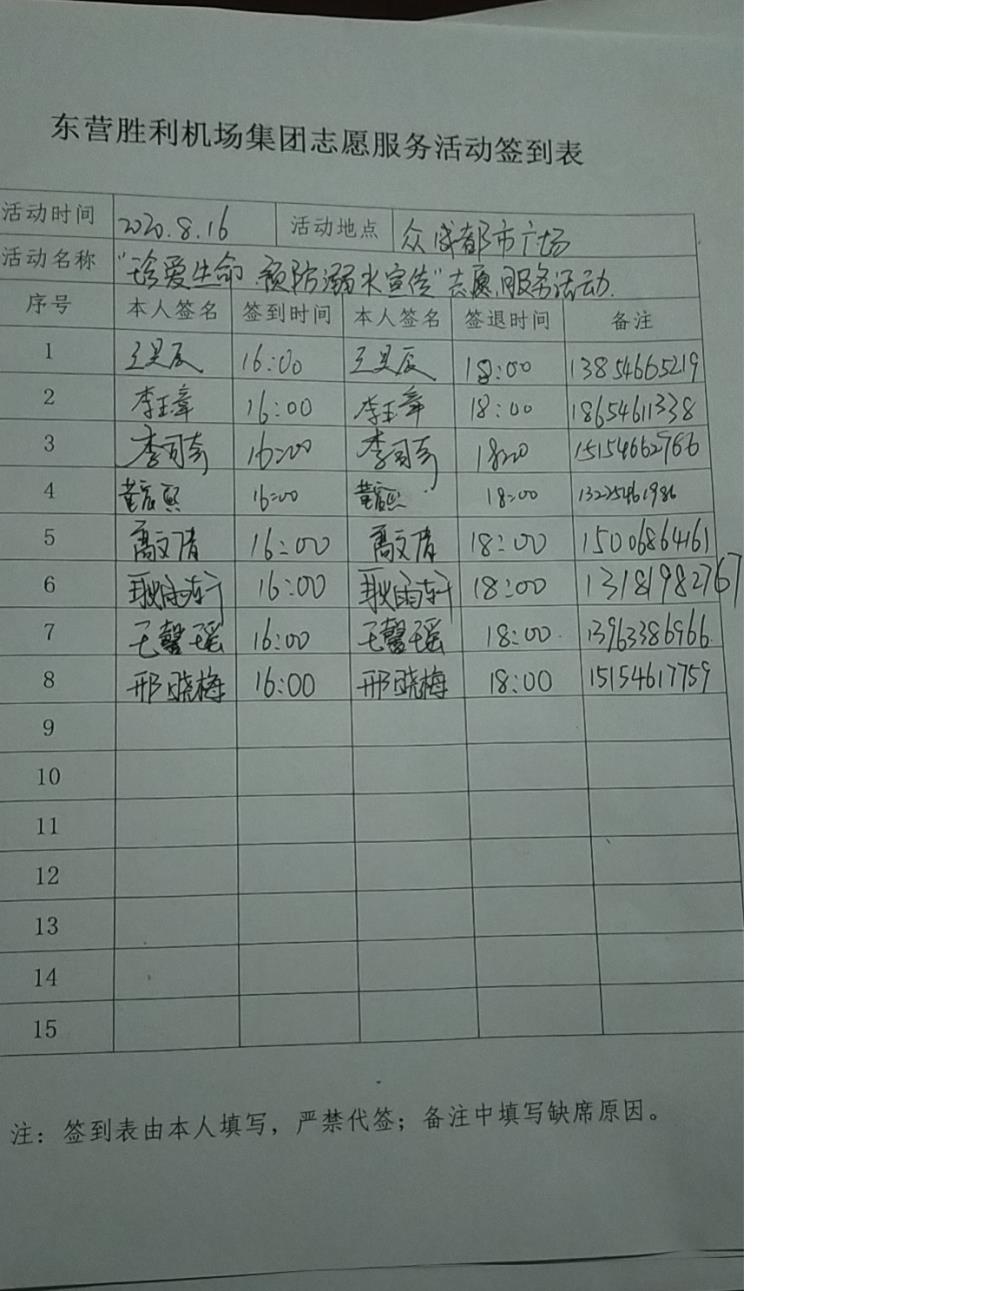 东营胜利机场集团志愿服务活动签到表
活动时间 2020.8.16 活动地点 众成都市广场
活动名称 “珍爱生命 预防溺水宣传”志愿服务活动.
序号 本人签名 签到时间 本人签名 签退时间 备注
1 王昊辰 16:00 王昊辰 18:00 13854665219
2 李玉章 16:00 李玉章 18:00 18654611338
3 李司奇 16:00 李司奇 18:00 15154662766
4 黄宸熙 16:00 黄宸熙 18:00 13225461986
5 高文清 16:00 高文清 18:00 15006864161
6 耿雨轩 16:00 耿雨轩 18:00 13181982767
7 王馨瑶 16:00 王馨瑶 18:00 13963386966
8 邢晓梅 16:00 邢晓梅 18:00 15154617759
9
10
11
12
13
14
15
注：签到表由本人填写，严禁代签；备注中填写缺席原因。